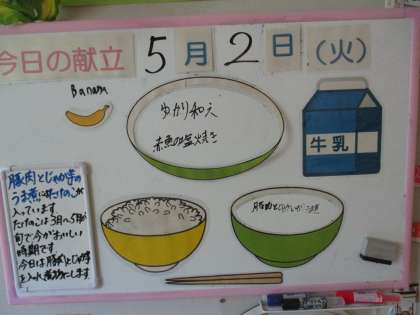 今日の献立 5月2日(火)
Banana
ゆかり和え
赤魚の塩焼き
牛乳
豚肉とじゃが芋の
うま煮にはたけのこが
入っています
たけのこは3月〜5月が
旬で今がおいしい
時期です
今日は豚肉とじゃが芋
を入れ煮物にします
豚肉とじゃがいものうま煮